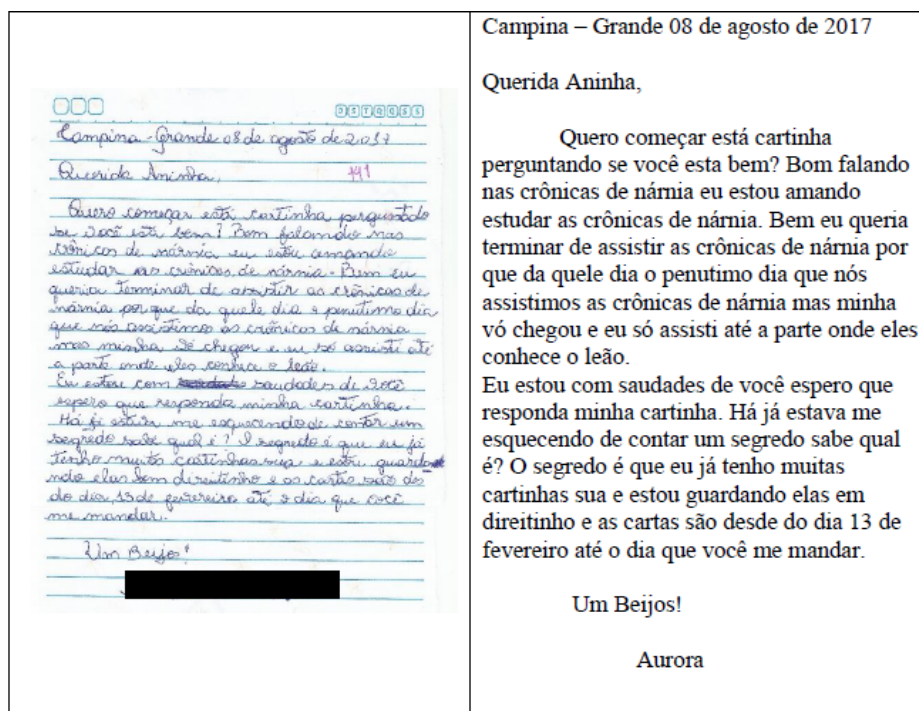 D S T Q Q S S
Campina - Grande 08 de agosto de 2017
Querida Aninha,
Quero começar está cartinha perguntado
se você esta bem? Bom falando nas
crônicas de nárnia eu estou amando
estudar as crônicas de nárnia. Bem eu
queria terminar de assistir as crônicas de
nárnia por que da quele dia o penutimo dia
que nós assistimos as crônicas de nárnia
mas minha vó chegou e eu só assisti até
a parte onde eles conhece o leão.
Eu estou com saudades de você
espero que responda minha cartinha.
Há já estava me esquecendo de contar um
segredo sabe qual é? O segredo é que eu já
tenho muitas cartinhas sua e estou guarda
ndo elas bem direitinho e as cartas são des
do dia 13 de fevereiro até o dia que você
me mandar.
Um Beijos!
Campina – Grande 08 de agosto de 2017
Querida Aninha,
Quero começar está cartinha
perguntando se você esta bem? Bom falando
nas crônicas de nárnia eu estou amando
estudar as crônicas de nárnia. Bem eu queria
terminar de assistir as crônicas de nárnia por
que da quele dia o penutimo dia que nós
assistimos as crônicas de nárnia mas minha
vó chegou e eu só assisti até a parte onde eles
conhece o leão.
Eu estou com saudades de você espero que
responda minha cartinha. Há já estava me
esquecendo de contar um segredo sabe qual
é? O segredo é que eu já tenho muitas
cartinhas sua e estou guardando elas em
direitinho e as cartas são desde do dia 13 de
fevereiro até o dia que você me mandar.
Um Beijos!
Aurora